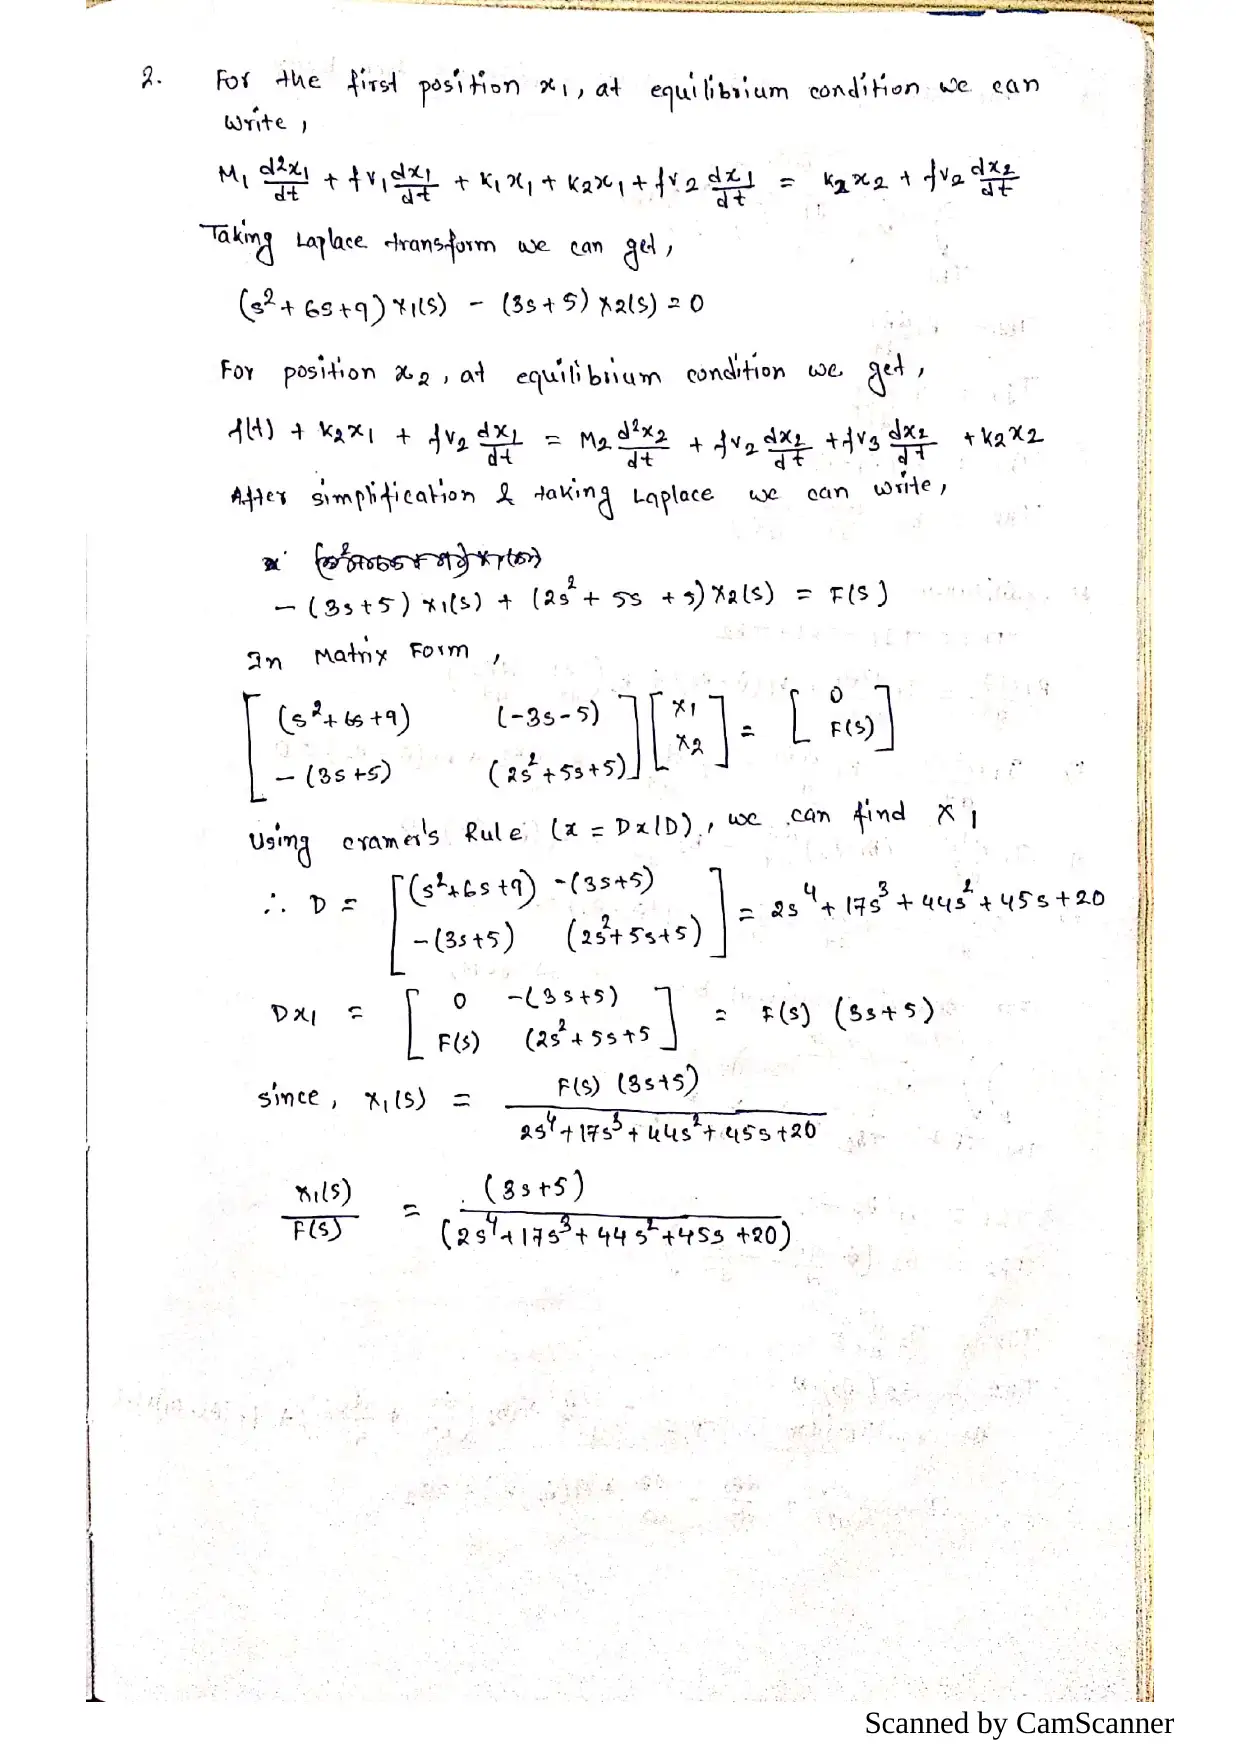 2. For the first position x1, at equilibrium condition we can
write,
M1 d2x1/dt + fv1 dx1/dt + K1x1 + K2x1 + fv2 dx1/dt = K2x2 + fv2 dx2/dt
Taking Laplace transform we can get,
(s²+6s+9) x1(s) - (3s+5) x2(s) = 0
For position x2, at equilibrium condition we get,
f(t) + K2x1 + fv2 dx1/dt = M2 d²x2/dt + fv2 dx2/dt + fv3 dx2/dt + K2x2
After simplification & taking Laplace we can write,
- (3s+5) x1(s) + (2s² + 5s + 5) x2(s) = F(s)
In Matrix Form,
[ (s²+6s+9) (-3s-5) ] [ x1 ] = [ 0 ]
[ - (3s+5) (2s²+5s+5) ] [ x2 ] [ F(s) ]
Using cramer's Rule (x = Dx/D), we can find x1
∴ D = [ (s²+6s+9) -(3s+5) ] = 2s⁴ + 17s³ + 44s² + 45s + 20
[ -(3s+5) (2s²+5s+5) ]
Dx1 = [ 0 -(3s+5) ] = F(s) (3s+5)
[ F(s) (2s²+5s+5 ]
since, x1(s) = F(s) (3s+5)
2s⁴+17s³+44s²+45s+20
x1(s)/F(s) = (3s+5)
(2s⁴+17s³+44s²+45s+20)
Scanned by CamScanner